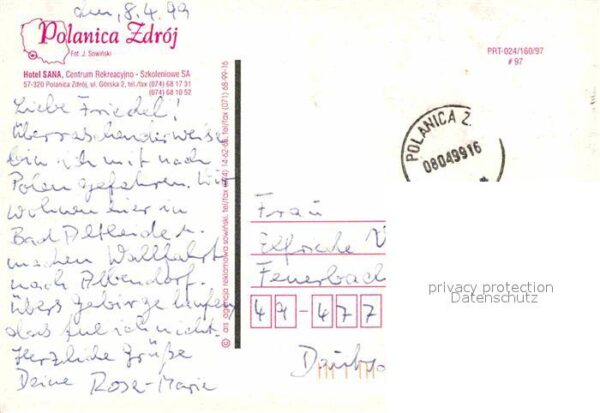 den, 8.4.99
Polanica Zdrój
Fot. J. Sowiński
Hotel SANA, Centrum Rekreacyjno - Szkoleniowe SA
57-320 Polanica Zdrój, ul. Górska 2, tel./fax (074) 68 17 31
(074) 68 10 52
PRT-024/160/97
# 97
POLANICA Z
08049916
Liebe Friedel!
Überraschenderweise
bin ich mit nach
Polen gefahren. Wir
wohnen hier in
Bad Altheide u.
machen Wallfahrt
nach Albendorf.
Übers Gebirge laufen
das tue ich nicht.
Herzliche Grüße
Deine Rose-Marie
© ars agencja reklamowa sowiński, tel/fax (074) 14-62-08, tel/fax (071) 68-99-16
Frau
Elfriede V
Feuerbach
47-477
privacy protection
Datenschutz